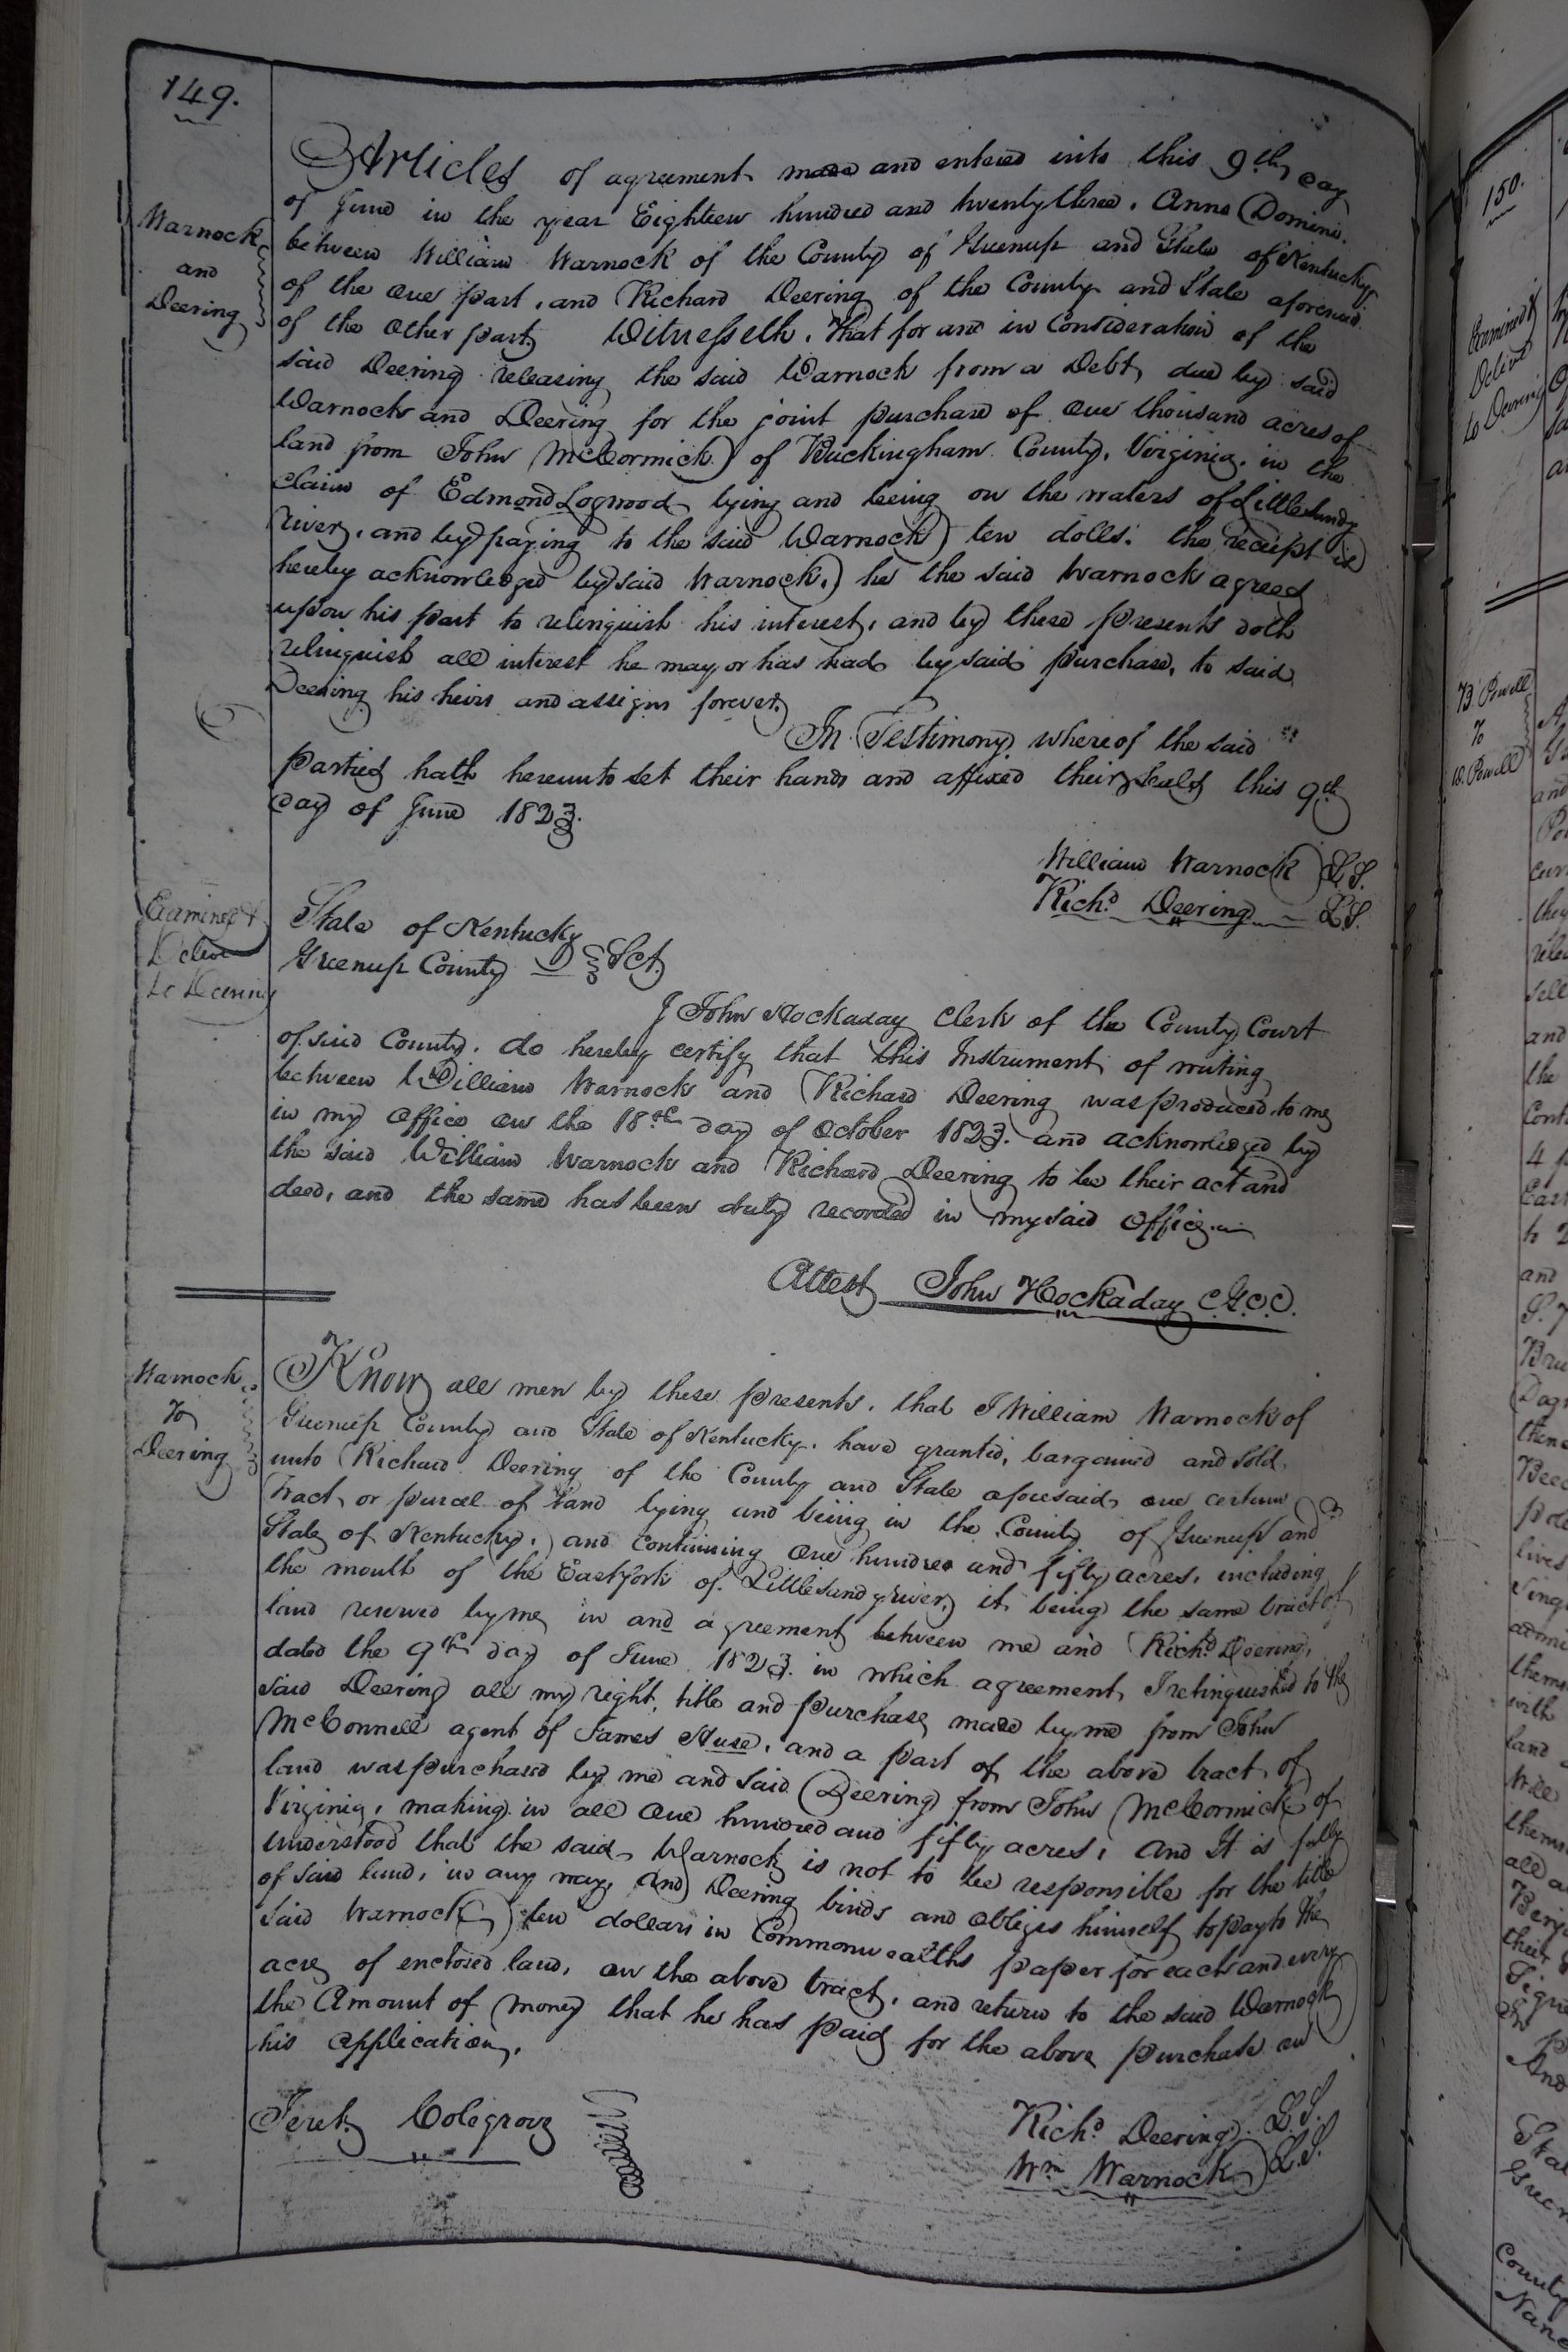 149.
Warnock
and
Deering
Articles of agreement made and entered into this 9th day
of June in the year Eighteen hundred and twenty three. Anno Domini.
between William Warnock of the County of Greenup and State of Kentucky
of the one part, and Richard Deering of the County and State aforesaid
of the other party Witnesseth. That for and in Consideration of the
said Deering releasing the said Warnock from a Debt, due by said
Warnock and Deering for the joint purchase of one thousand acres of
land from John McCormick of Buckingham County, Virginia, in the
claim of Edmond Logwood, lying and being on the waters of Little Sandy
river, and by paying to the said Warnock ten dolls. the receipt is
hereby acknowledged by said Warnock, he the said Warnock agrees
upon his part to relinquish his interest, and by these presents doth
relinquish all interest he may or has had by said purchase, to said
Deering his heirs and assigns forever.
In Testimony whereof the said
parties hath hereunto set their hands and affixed their seals this 9th
day of June 1823.
William Warnock L.S.
Richd Deering L.S.
Examined &
Deliv
to Deering
State of Kentucky
Greenup County Sct.
I John Hockaday Clerk of the County Court
of said County, do hereby certify that this Instrument of writing
between William Warnock and Richard Deering was produced to me
in my office on the 18th day of October 1823. and acknowledged by
the said William Warnock and Richard Deering to be their act and
deed, and the same has been duly recorded in my said office.
Attest John Hockaday C.G.C.C.
Warnock
To
Deering
Know all men by these presents, that I William Warnock of
Greenup County and State of Kentucky, have granted, bargained and sold,
unto Richard Deering of the County and State aforesaid, one certain
Tract, or parcel of land lying and being in the County of Greenup and
State of Kentucky, and containing One hundred and fifty acres, including
the mouth of the East fork of Little Sandy river, it being the same tract of
land reserved by me, in and agreement between me and Richd Deering,
dated the 9th day of June 1823. in which agreement, I relinquished to the
said Deering all my right, title and purchase, made by me from John
McConnell agent of James Huse, and a part of the above tract of
land was purchased by me and said Deering from John McCormick of
Virginia, making in all One hundred and fifty acres, and It is fully
understood that the said Warnock is not to be responsible for the title
of said land, in any way, and Deering binds and obliges himself to pay to the
said Warnock ten dollars in Commonwealths paper for each and every
acre of enclosed land, on the above tract, and return to the said Warnock
the Amount of money that he has paid for the above purchase on
his application.
Jereh. Colegrove
Richd Deering L.S.
Wm Warnock L.S.
150.
Examined &
Delivd
to Deering
B Powell
To
W. Powell